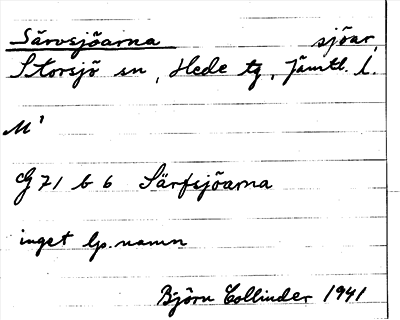 Särvsjöarna sjöar,
Storsjö sn, Hede tg, Jämtl. l.
M¹
G 71 b 6 Särfsjöarna
inget lp. namn
Björn Collinder 1941